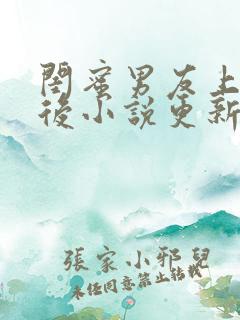 閨蜜男友上
後小說更新
張家小邪兒
未经同意禁止转载